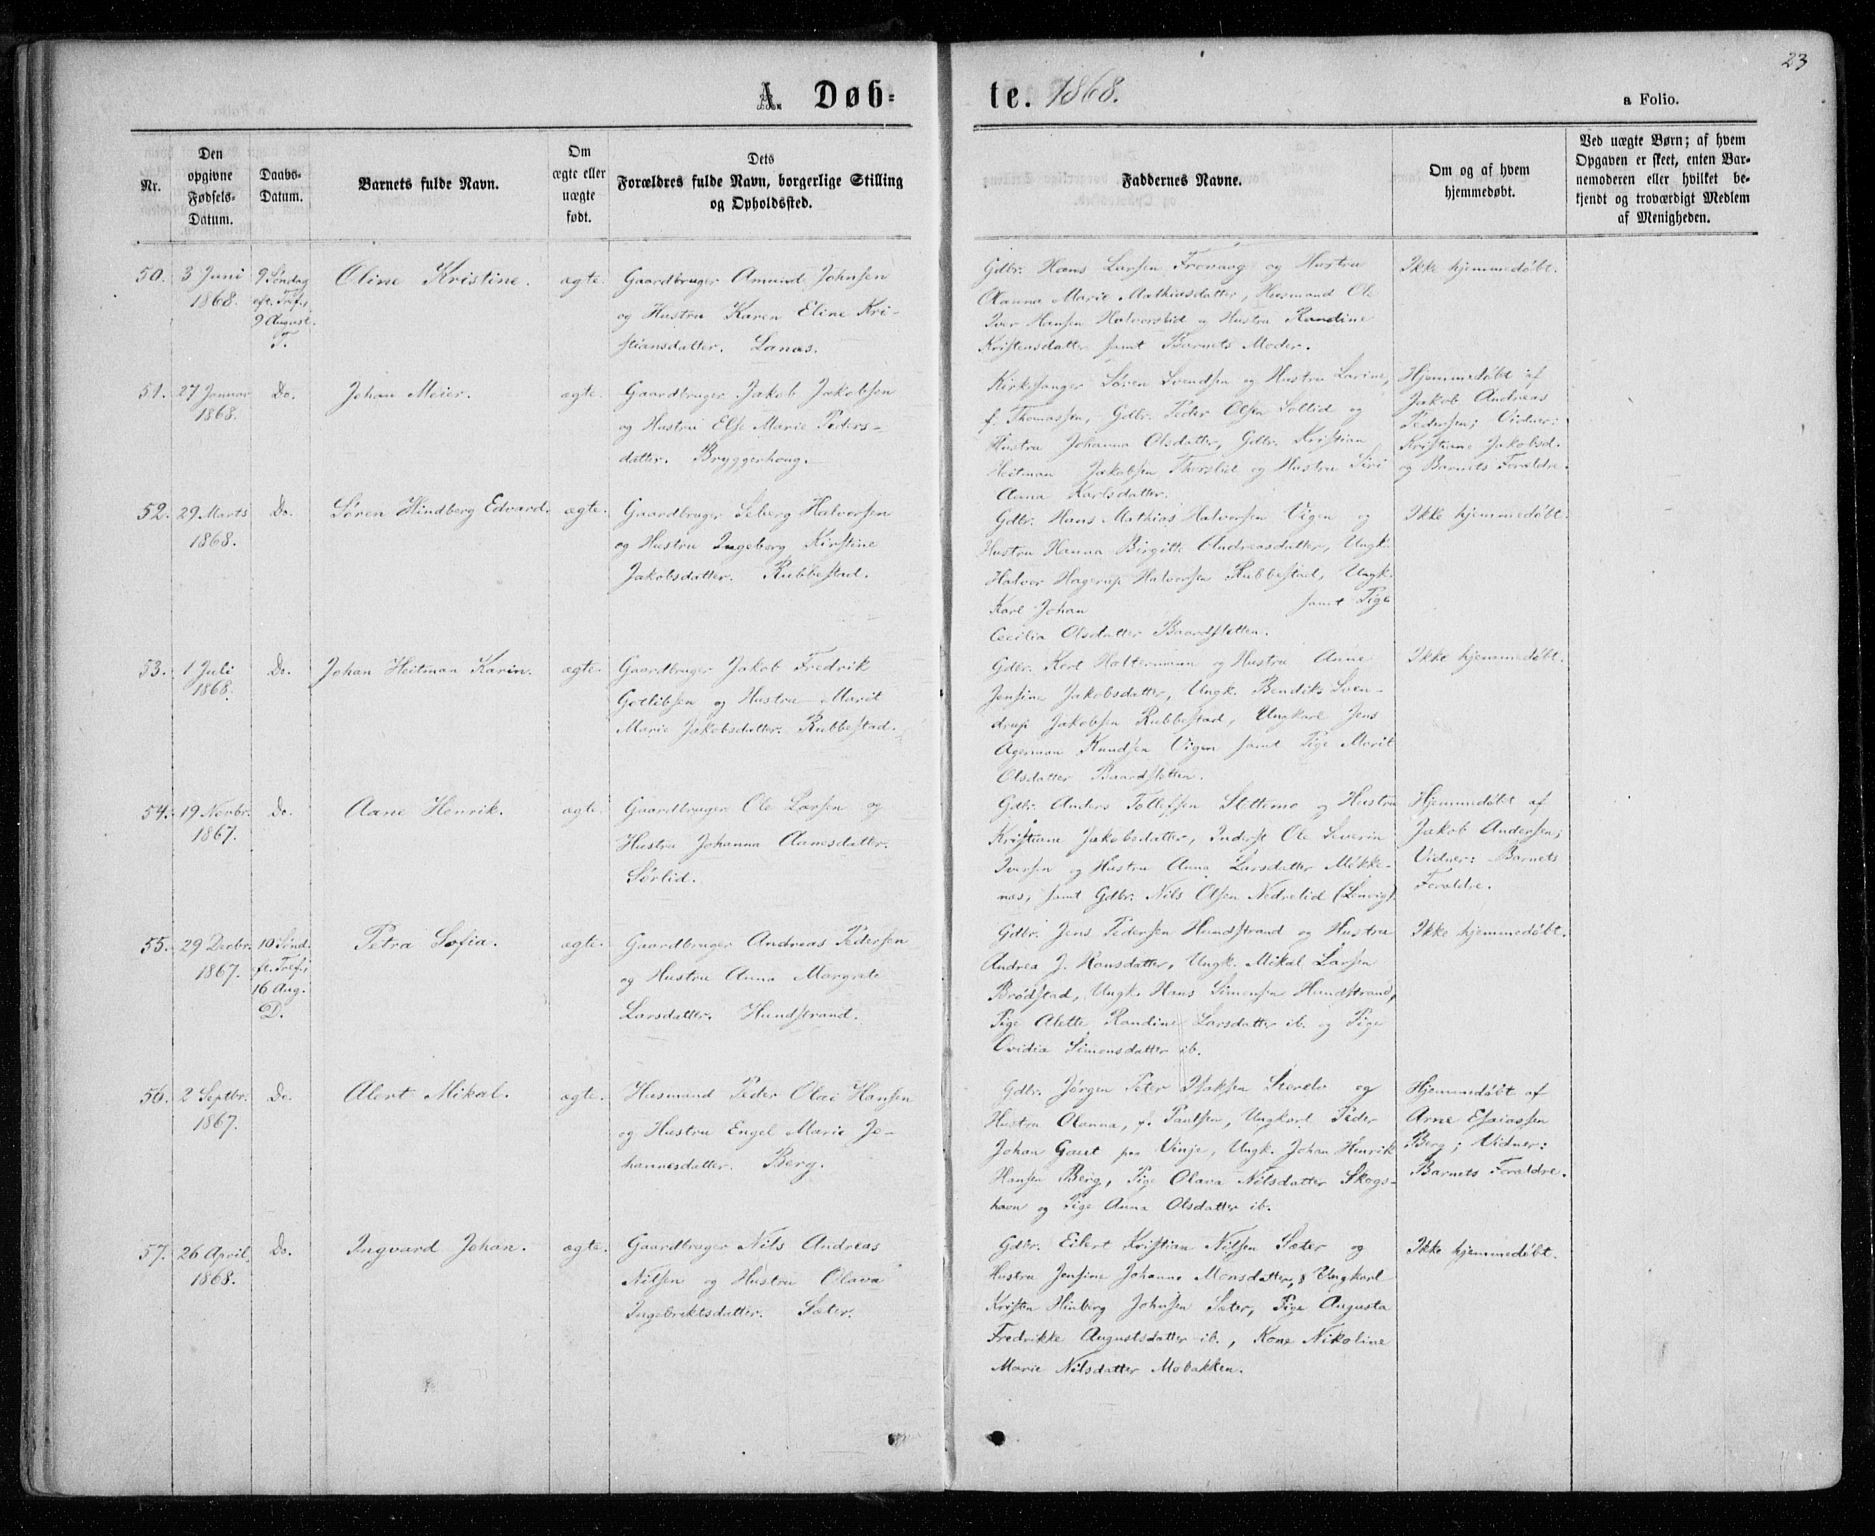 23
A. Døb-
te. 1868.
a Folio.
Nr.
Den
opgivne
Fødsels-
Datum.
Daabs-
Datum.
Barnets fulde Navn.
Om
ægte eller
uægte
født.
Dets
Forældres fulde Navn, borgerlige Stilling
og Opholdssted.
Faddernes Navne.
Om og af hvem
hjemmedøbt.
Ved uægte Børn; af hvem
Opgaven er skeet, enten Bar-
nemoderen eller hvilket be-
kjendt og troværdigt Medlem
af Menigheden.
50.
3 Juni
1868.
9 Søndag
eft. Tref.,
9 August.
T.
Oline Kristine.
ægte.
Gaardbruger Amund Johnsen
og Hustru Karen Eline Kri-
stiansdatter. Lanæs.
Gdbr. Hans Larsen Frovaag og Hustru
Olanna Marie Mathiasdatter, Husmand Ole
Iver Hansen Halvorslid og Hustru Randine
Kristensdatter samt Barnets Moder.
Ikke hjemmedøbt.
51.
27 Januar
1868.
Do.
Johan Meier.
ægte.
Gaardbruger Jakob Jakobsen
og Hustru Else Marie Peders-
datter. Bryggerhaug.
Kirkesanger Søren Svendsen og Hustru Larine,
f. Thomassen, Gdbr. Peder Olsen Sollid og
Hustru Johanna Olsdatter, Gdbr. Kristian
Heitman Jakobsen Thorslid og Hustru Siri
Anna Karlsdatter.
Hjemmedøbt af
Jakob Andreas
Pedersen; Vidner:
Kristiane Jakobsd.
og Barnets Forældre.
52.
29 Marts
1868.
Do.
Søren Hindberg Edvard.
ægte.
Gaardbruger Seberg Halvorsen
og Hustru Ingeberg Kirstine
Jakobsdatter. Rubbestad.
Gdbr. Hans Mathias Halvorsen Vigen og
Hustru Hanna Birgitte Andreasdatter, Ungk.
Halvor Hagerup Halvorsen Rubbestad, Ungk.
Karl Johan samt Pige
Cecilia Olsdatter Baardsletten.
Ikke hjemmedøbt.
53.
1 Juli
1868.
Do.
Johan Heitman Karin.
ægte.
Gaardbruger Jakob Fredrik
Gotlibsen og Hustru Marit
Marie Jakobsdatter. Rubbestad.
Gdbr. Kerl Haltermann og Hustru Anne
Jensine Jakobsdatter, Ungk. Bendik Sven-
drup Jakobsen Rubbestad, Ungkarl Jens
Agerman Knudsen Vigen samt Pige Marit
Olsdatter Baardsletten.
Ikke hjemmedøbt.
54.
19 Novbr.
1867.
Do.
Aane Henrik.
ægte.
Gaardbruger Ole Larsen og
Hustru Johanna Aanesdatter.
Sørlid.
Gdbr. Anders Tollefsen Slettemo og Hustru
Kristiane Jakobsdatter, Inderst Ole Severin
Iversen og Hustru Anna Larsdatter Møkke-
næs, samt Gdbr. Nils Olsen Nedrelid (Lenvig).
Hjemmedøbt af
Jakob Andersen;
Vidner: Barnets
Forældre.
55.
29 Decbr.
1867.
10 Sønd.
ft. Tref.,
16 Aug.
D.
Petra Sofia.
ægte.
Gaardbruger Andreas Pedersen
og Hustru Anna Margrete
Larsdatter. Hundstrand.
Gdbr. Jens Pedersen Hundstrand og Hustru
Andrea J. Hansdatter, Ungk. Mikal Larsen
Brødstad, Ungk. Hans Simonsen Hundstrand,
Pige Alette Randine Larsdatter ib. og Pige
Ovidia Simonsdatter ib.
Ikke hjemmedøbt.
56.
2 Septbr.
1867.
Do.
Alert Mikal.
ægte.
Husmand Peder Olai Hansen
og Hustru Engel Marie Jo-
hannesdatter. Berg.
Gdbr. Jørgen Peter Isaksen Sterelv og
Hustru Olanna, f. Paulsen, Ungkarl Peder
Johan Gaut paa Vinje, Ungk. Johan Henrik
Hansen Berg, Pige Olava Nilsdatter Skogs-
havn og Pige Anna Olsdatter ib.
Hjemmedøbt af
Arne Esaiassen
Berg; Vidner:
Barnets Forældre.
57.
26 April
1868.
Do.
Ingvard Johan.
ægte.
Gaardbruger Nils Andreas
Nilsen og Hustru Olava
Ingebriktsdatter. Sæter.
Gdbr. Eilert Kristian Nilsen Sæter og
Hustru Jensine Johanna Monsdatter, Ungkarl
Kristen Hinberg Johnsen Sæter, Pige Augusta
Fredrikke Augustsdatter ib., Kone Nikoline
Marie Nilsdatter Mobakken.
Ikke hjemmedøbt.